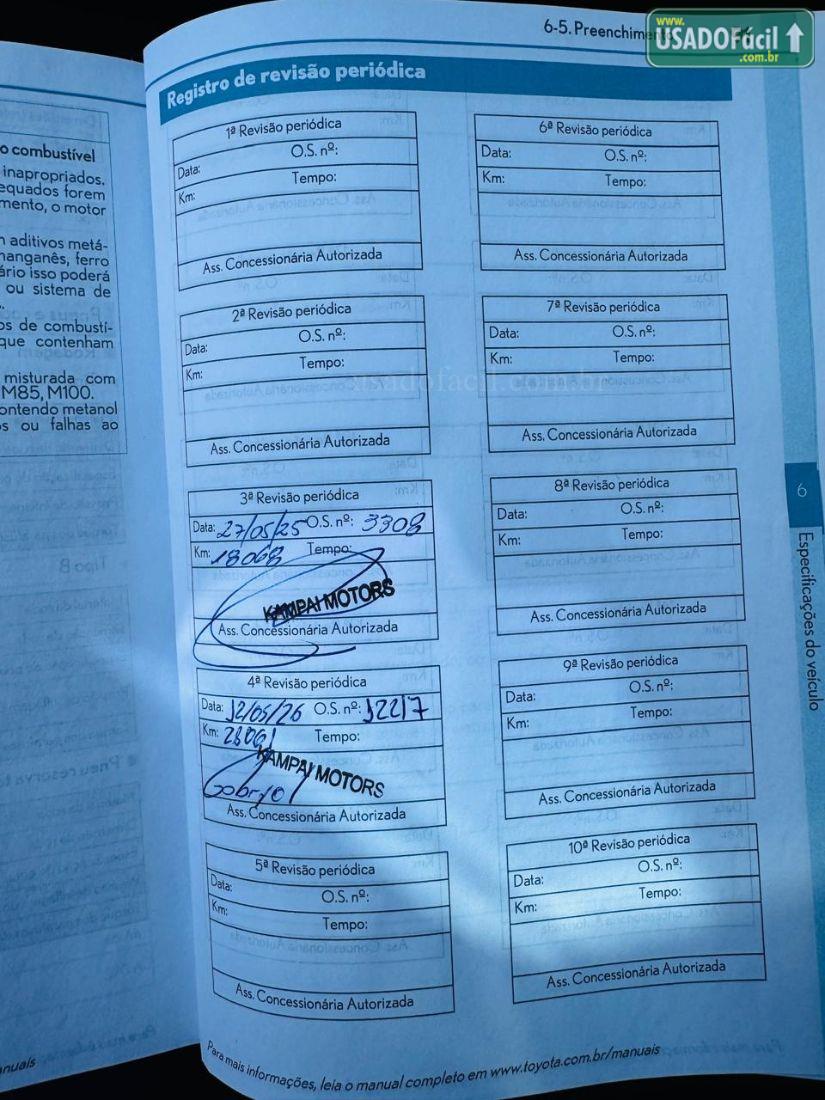 6-5. Preenchimento
www.
USADOFácil
.com.br
Registro de revisão periódica
1ª Revisão periódica
Data: O.S. nº:
Km: Tempo:
Ass. Concessionária Autorizada
2ª Revisão periódica
Data: O.S. nº:
Km: Tempo:
Ass. Concessionária Autorizada
3ª Revisão periódica
Data: 27/05/25 O.S. nº: 3308
Km: 18068 Tempo:
KAMPAI MOTORS
Ass. Concessionária Autorizada
4ª Revisão periódica
Data: 12/05/26 O.S. nº: 12217
Km: 28061 Tempo:
KAMPAI MOTORS
Ass. Concessionária Autorizada
5ª Revisão periódica
Data: O.S. nº:
Km: Tempo:
Ass. Concessionária Autorizada
6ª Revisão periódica
Data: O.S. nº:
Km: Tempo:
Ass. Concessionária Autorizada
7ª Revisão periódica
Data: O.S. nº:
Km: Tempo:
Ass. Concessionária Autorizada
8ª Revisão periódica
Data: O.S. nº:
Km: Tempo:
Ass. Concessionária Autorizada
9ª Revisão periódica
Data: O.S. nº:
Km: Tempo:
Ass. Concessionária Autorizada
10ª Revisão periódica
Data: O.S. nº:
Km: Tempo:
Ass. Concessionária Autorizada
Para mais informações, leia o manual completo em www.toyota.com.br/manuais
6
Especificações do veículo
usadofacil.com.br
o combustível
inapropriados.
equados forem
mento, o motor
m aditivos metá-
manganês, ferro
ário isso poderá
ou sistema de
os de combustí-
que contenham
misturada com
M85, M100.
ontendo metanol
s ou falhas ao
nuais